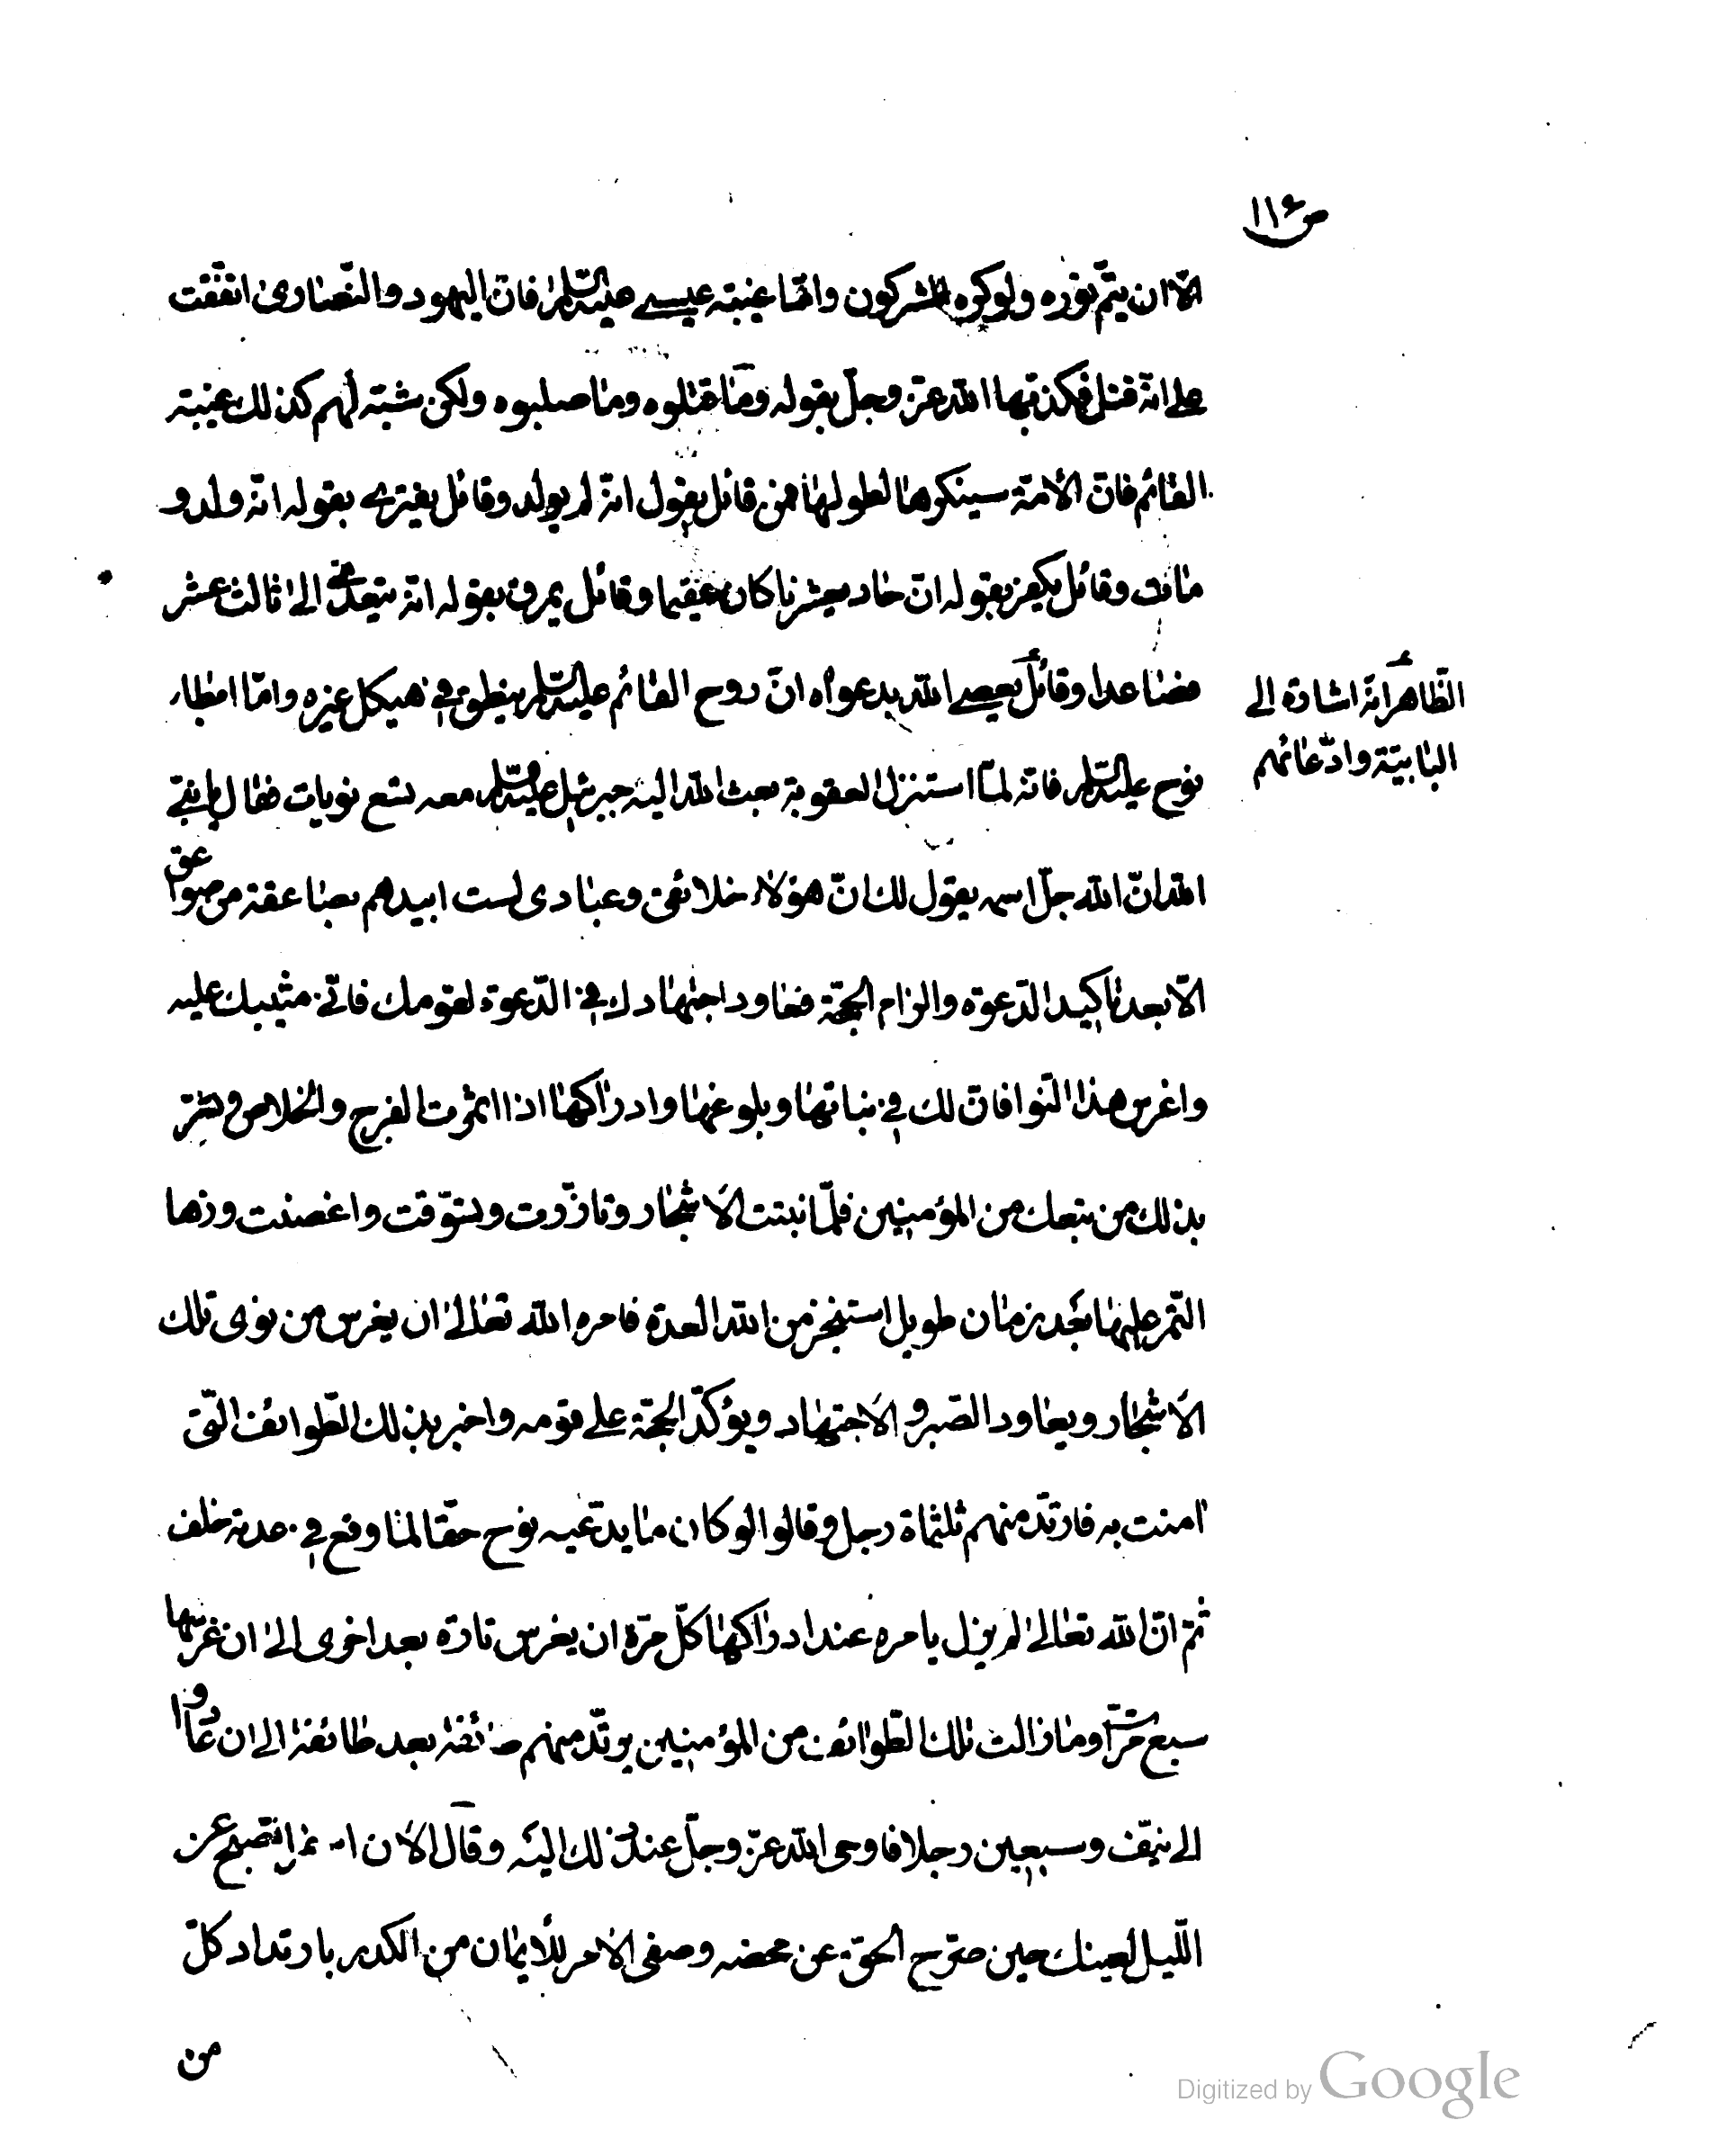 ص ١١۶
الّا ان يتمّ نوره ولو كره المشركون وامّا غيبة عيسى عليه السّلم فانّ اليهود والنّصارى اتفقت
على انّه قتل فكذّبها الله عزّ وجلّ بقوله وما قتلوه وما صلبوه ولكن شبّه لهم كذلك غيبة
القائم فانّ الأمّة سينكرها لطولها فمن قائل يقول انّه لم يولد وقائل يفترى بقوله انّه ولد و
مات وقائل يكفر بقوله انّ حادى عشرنا كان عقيما وقائل يمرق بقوله انّه يتعدّى الى ثالث عشر
فصاعدا وقائل يعصى الله بدعواه انّ روح القائم عليه السّلم ينطق فى هيكل غيره وامّا ابطاء
الظّاهر انّه اشارة الى
البابيّة وادّعائهم
نوح عليه السّلم فانّه لمّا استنزل العقوبة بعث الله اليه جبرئيل عليه السّلم معه سبع نويات فقال يا نبىّ
الله انّ الله جلّ اسمه يقول لك انّ هؤلاء خلائقى وعبادى لست ابيدهم بصاعقة من صواعق
الّا بعد تاكيد الدّعوة والزام الحجّة فعاود اجتهادك فى الدّعوة لقومك فانّى مثيبك عليه
واغرس هذا النّوا فانّ لك فى نباتها وبلوغها وادراكها اذا اثمرت الفرج والخلاص وبشّر
بذلك من تبعك من المؤمنين فلمّا نبتت الأشجار وتازّرت وتسوّقت واغصنت وزها
الثّمر عليها بعد زمان طويل استنجز من الله العدة فامره الله تعالى ان يغرس من نوى تلك
الأشجار ويعاود الصّبر و الأجتهاد ويؤكّد الحجّة على قومه واخبر بذلك الطّوائف الّتى
امنت به فارتدّ منهم ثلثمأة رجل وقالوا لو كان ما يدّعيه نوح حقّا لما وقع فى عدته خلف
ثمّ انّ الله تعالى لم يزل يامره عند ادراكها كلّ مرّة ان يغرس تارة بعد اخرى الى ان غرسها
سبع مرّات وما زالت تلك الطّوائف من المؤمنين يرتدّ منهم طائفة بعد طائفة الى ان عادوا
الى نيّف وسبعين رجلا فاوحى الله عزّ وجلّ عند ذلك اليه وقال الأن اسفر الصّبح عن
اللّيل لعينك حين صرّح الحقّ عن محضه وصفى الأمر للأيمان من الكدر بارتداد كلّ
من
Digitized by Google